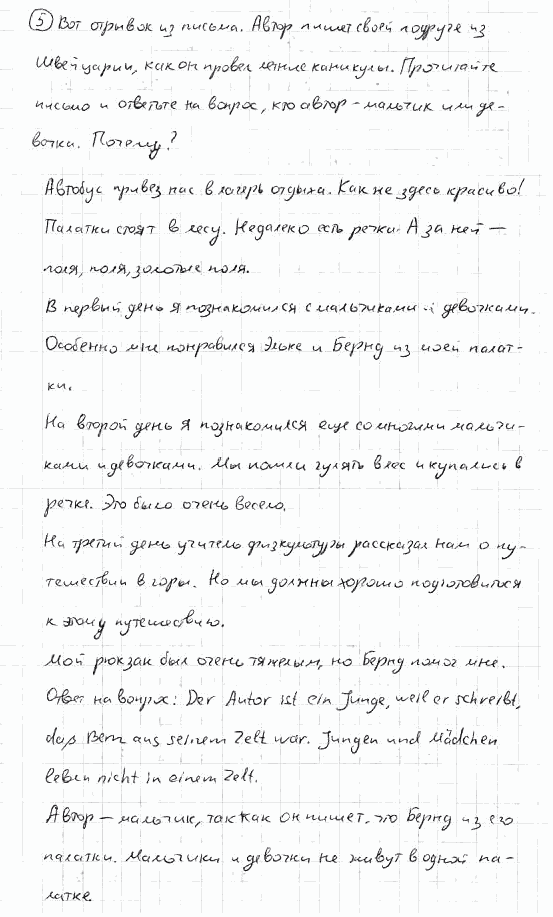 5 Вот отрывок из письма. Автор пишет своей подруге из
Швейцарии, как он провел летние каникулы. Прочитайте
письмо и ответьте на вопрос, кто автор - мальчик или де-
вочка. Почему?
Автобус привез нас в лагерь отдыха. Как же здесь красиво!
Палатки стоят в лесу. Недалеко есть речка. А за ней —
поля, поля, золотые поля.
В первый день я познакомился с мальчиками и девочками.
Особенно мне понравился Эльке и Бернд из моей палат-
ки.
На второй день я познакомился еще со многими мальчи-
ками и девочками. Мы пошли гулять в лес и купались в
речке. Это было очень весело.
На третий день учитель физкультуры рассказал нам о пу-
тешествии в горы. Но мы должны хорошо подготовиться
к этому путешествию.
Мой рюкзак был очень тяжелым, но Бернд помог мне.
Ответ на вопрос: Der Autor ist ein Junge, weil er schreibt,
daß Bern aus seinem Zelt war. Jungen und Mädchen
leben nicht in einem Zelt.
Автор — мальчик, так как он пишет, что Бернд из его
палатки. Мальчики и девочки не живут в одной па-
латке.